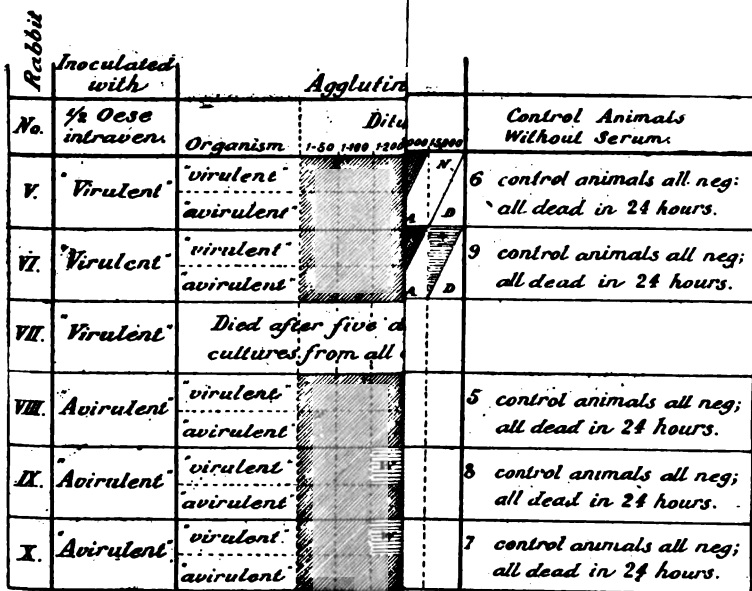 Rabbit
Inoculated with
Agglutin
No.
½ Oese intraven.
Organism
Dilu
1-50 1-100 1-200
000 1-5000
Control Animals
Without Serum.
V.
"Virulent"
"virulent"
"avirulent"
N.
A D
6 control animals all neg:
all dead in 24 hours.
VI.
"Virulent"
"virulent"
"avirulent"
A D
9 control animals all neg;
all dead in 24 hours.
VII.
"Virulent"
Died after five d
cultures from all
VIII.
"Avirulent"
"virulent"
"avirulent"
5 control animals all neg;
all dead in 24 hours.
IX.
"Avirulent"
"virulent"
"avirulent"
8 control animals all neg;
all dead in 24 hours.
X.
"Avirulent"
"virulent"
"avirulent"
7 control animals all neg;
all dead in 24 hours.